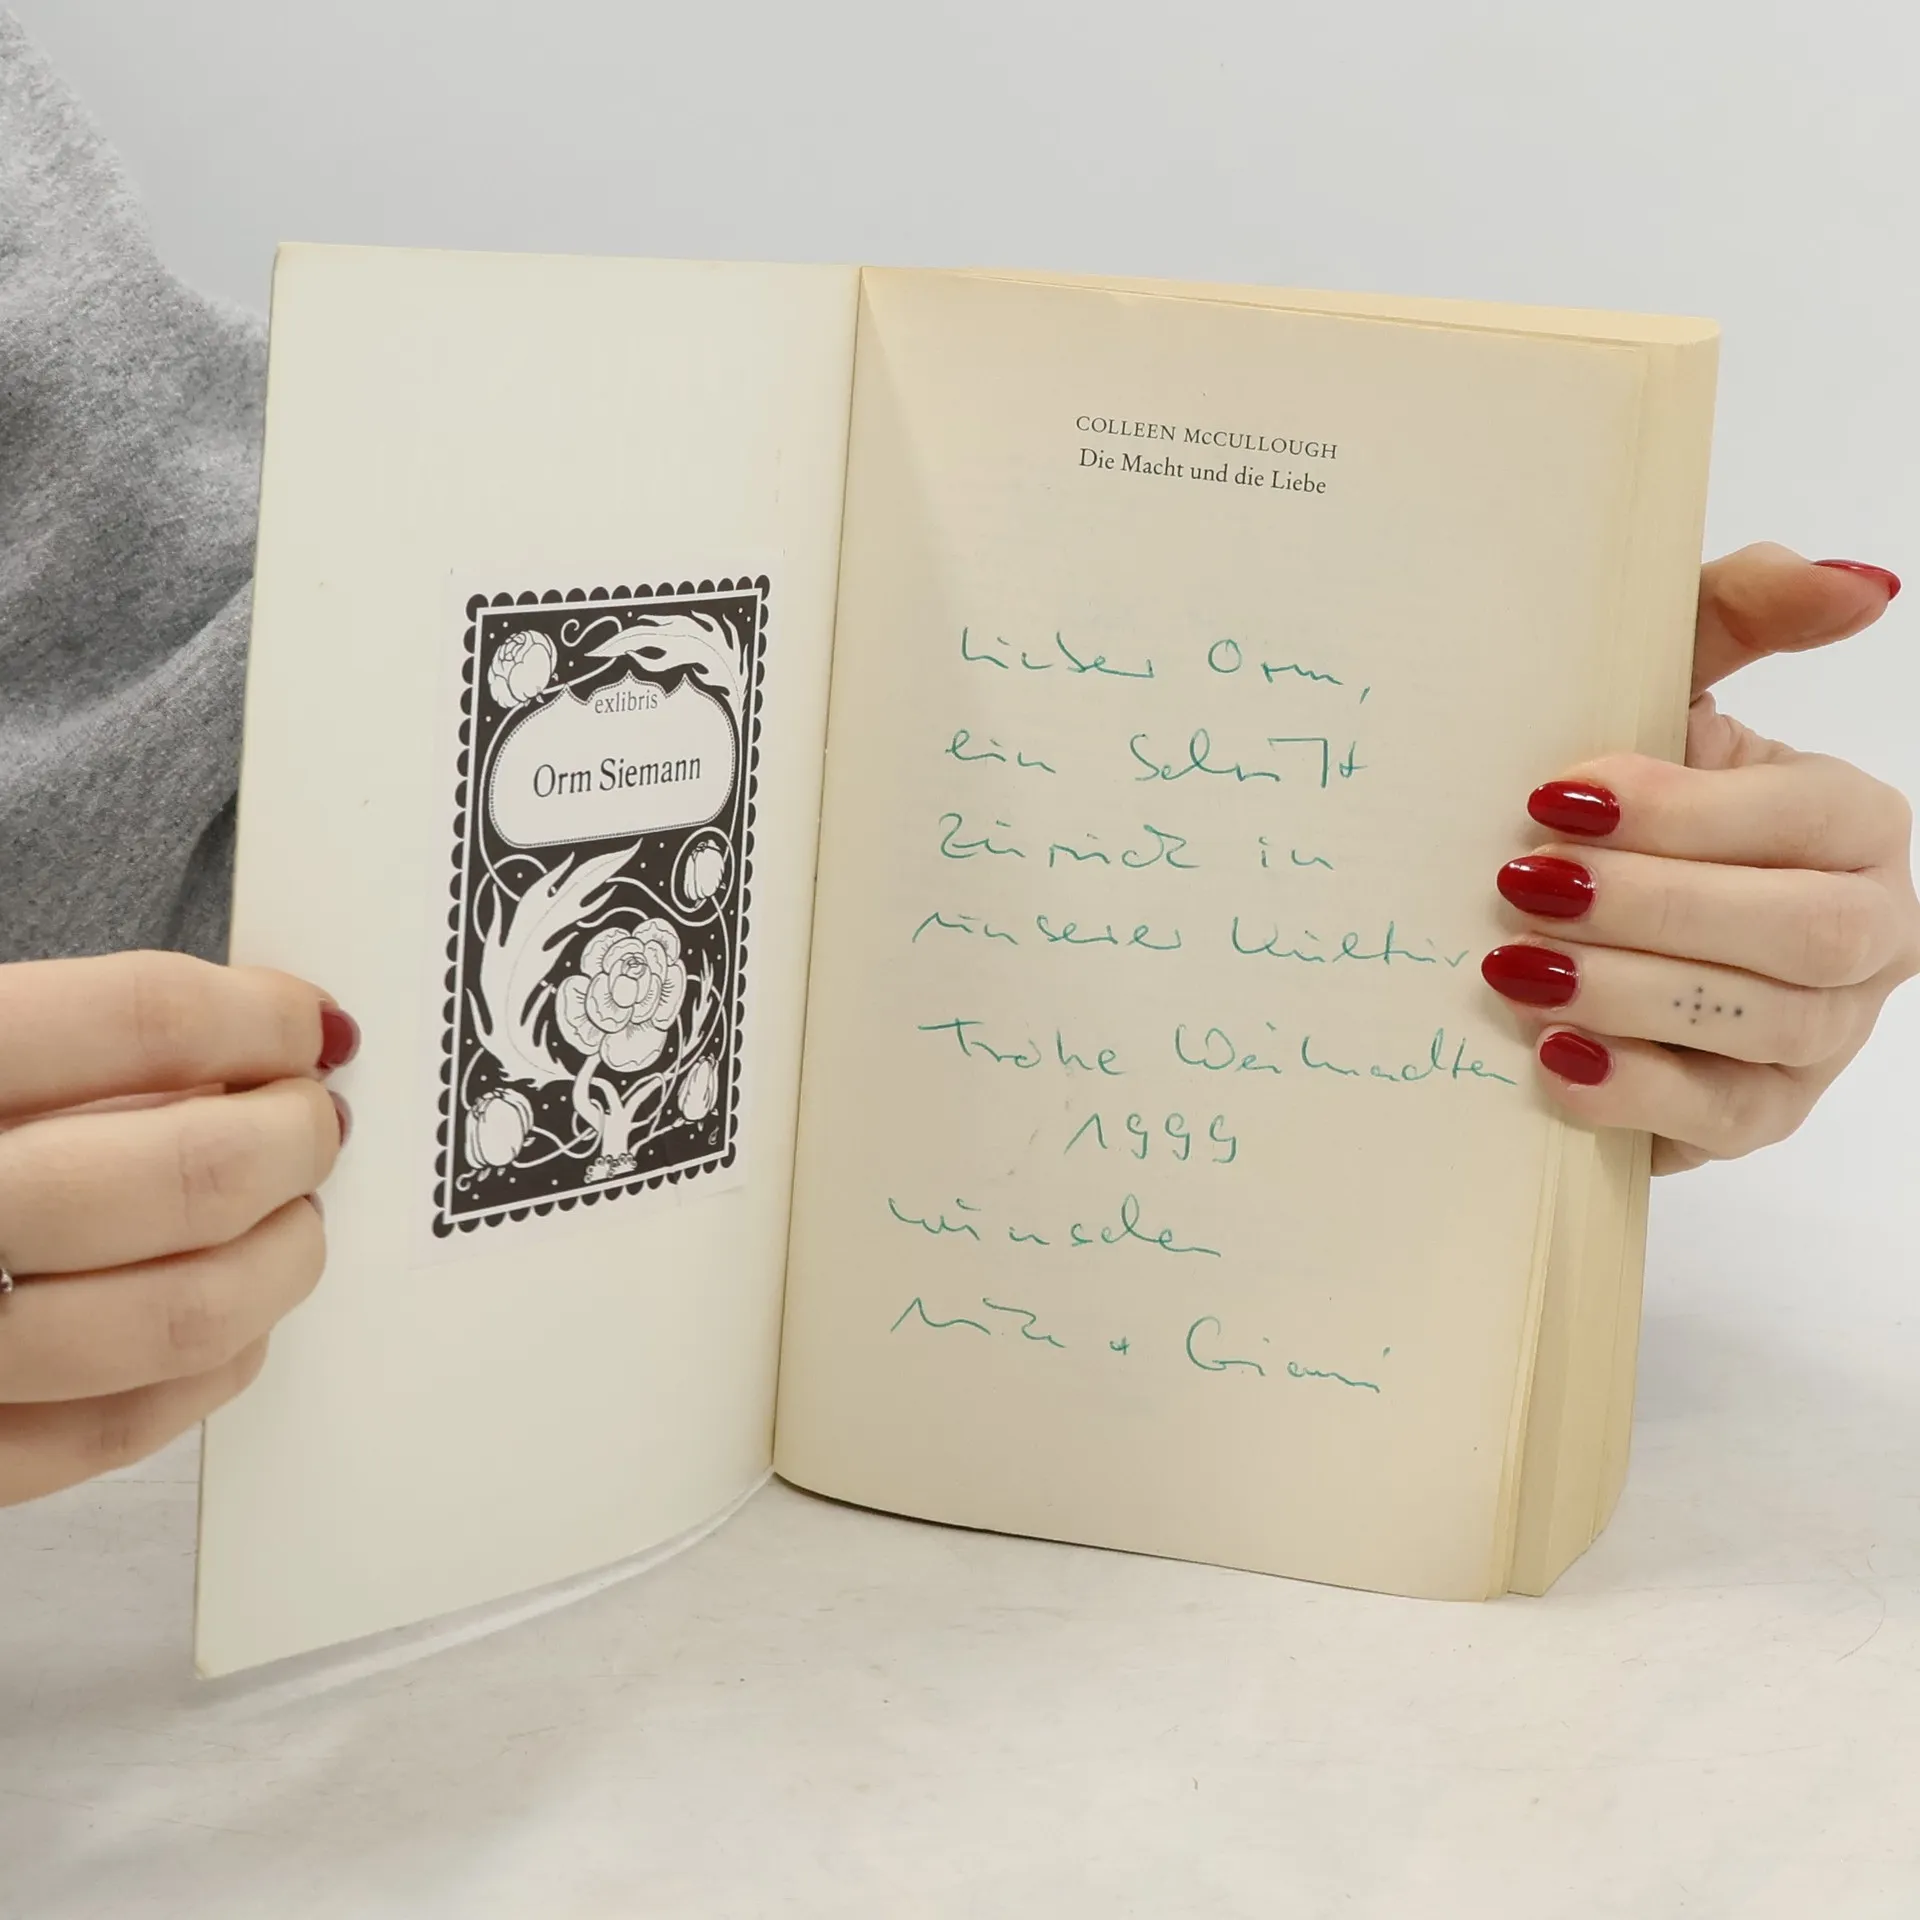 exlibris
Orm Siemann
COLLEEN McCULLOUGH
Die Macht und die Liebe
Lieber Orm,
ein Schritt
zurück in
unserer Kultur
Frohe Weihnachten
1999
wünschen
+